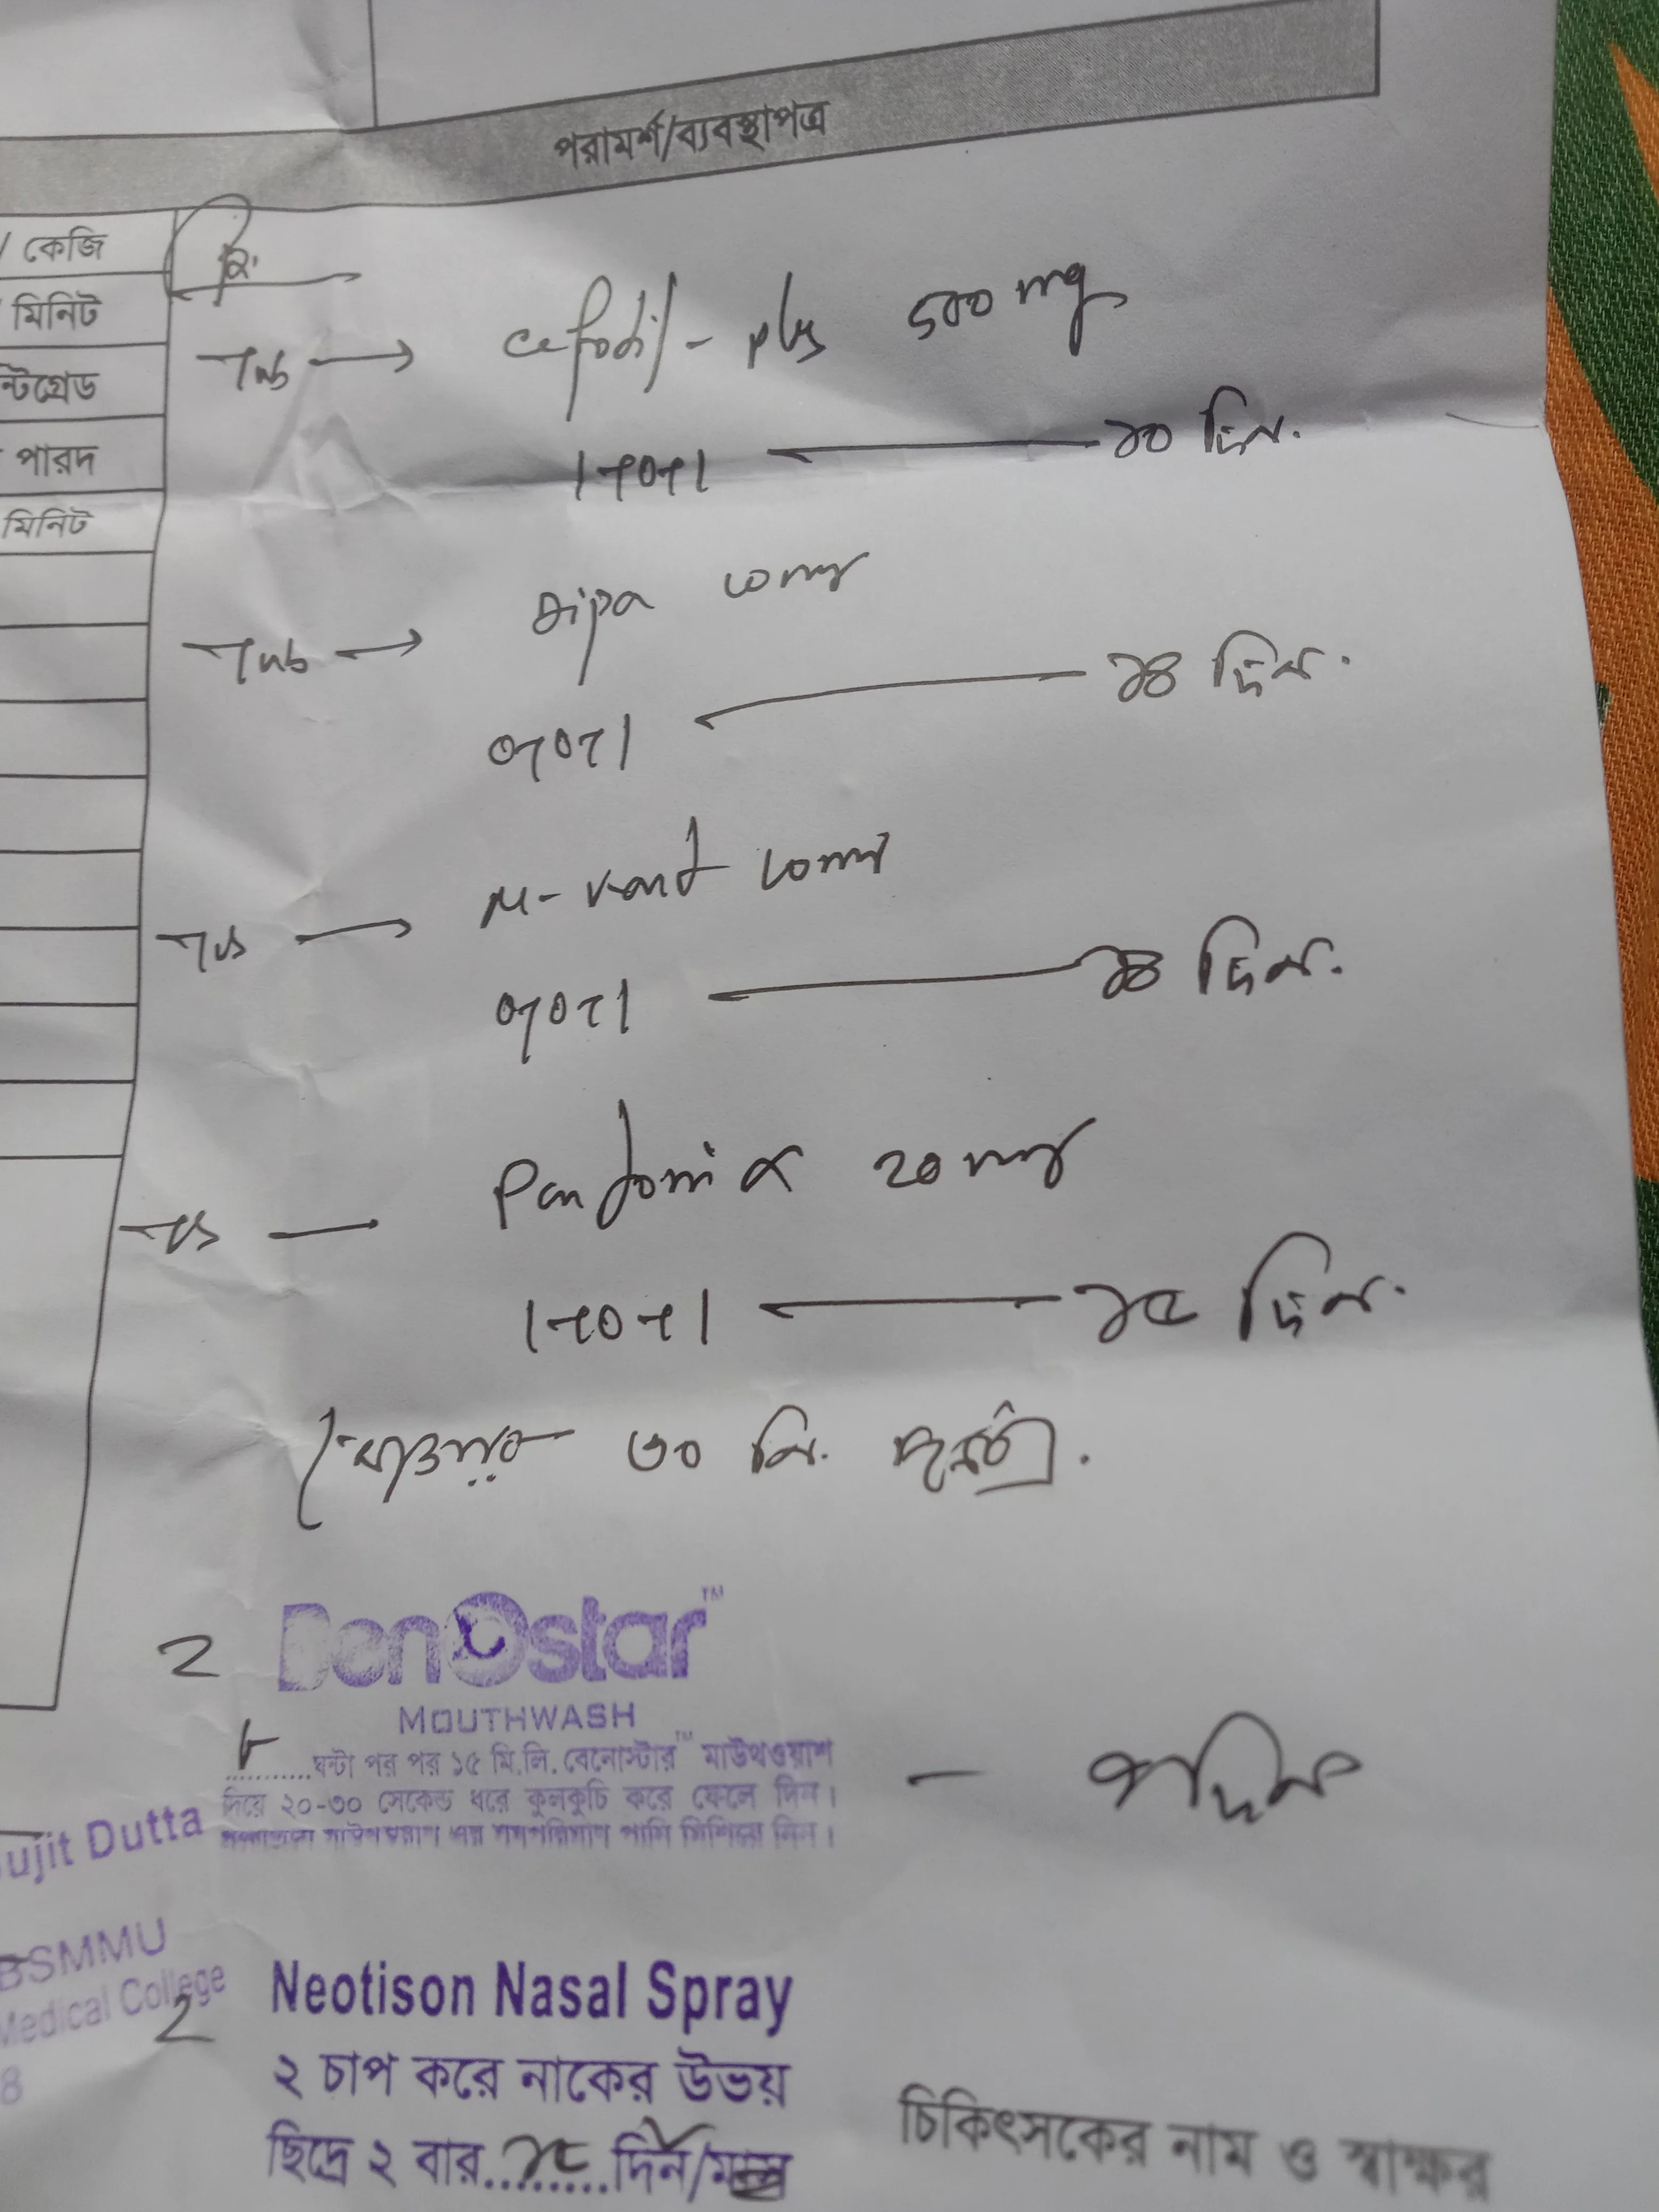 পরামর্শ/ব্যবস্থাপত্র
/ কেজি
মিনিট
ন্টিগ্রেড
পারদ
মিনিট
Rx.
Tab → Cefodil-plus 500 mg
1+0+1 ← ১০ দিন.
Tab → 10mg
0+0+1 ← ১৪ দিন.
Tab → M-kast 10mg
0+0+1 ← ১৪ দিন.
Tab — Pantonix 20mg
1+0+1 ← ১৫ দিন.
খাওয়ার ৩০ মি. পূর্বে.
2 BenOstar™
MOUTHWASH
৮ ঘন্টা পর পর ১৫ মি.লি. বেনোস্টার™ মাউথওয়াশ
দিয়ে ২০-৩০ সেকেন্ড ধরে কুলকুচি করে ফেলে দিন। — ৭দিন
ujit Dutta
BSMMU
Medical College
8
2 Neotison Nasal Spray
২ চাপ করে নাকের উভয়
ছিদ্রে ২ বার....১৫....দিন/মাস
চিকিৎসকের নাম ও স্বাক্ষর